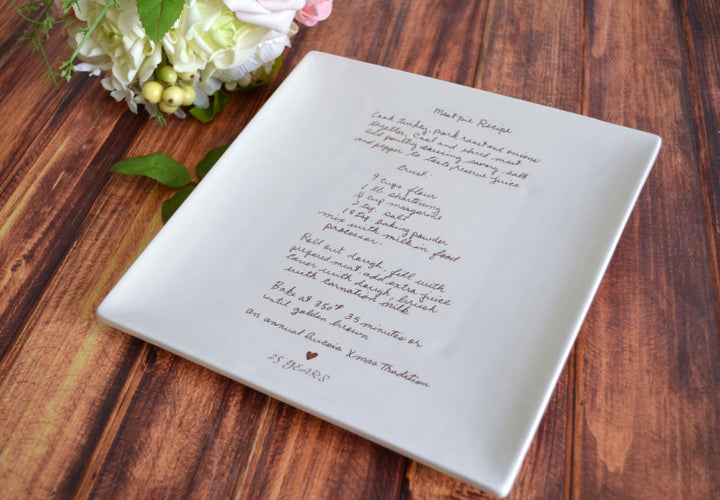 Meat Pie Recipe
Cook turkey, pork roast and onions
together, Cool and shred meat
add poultry dressing, savory, salt
and pepper to taste, reserve juice
Crust:
9 cups flour
1 lb shortening
cup margarine
2 tsp. salt
18 tsp. baking powder
mix with milk in food
processor.
Roll out dough, fill with
prepared meat, add extra juice
cover with dough, brush
with carnation milk
Bake at 350°F 35 minutes or
until golden brown
an annual Aucoin Xmas Tradition
25 YEARS